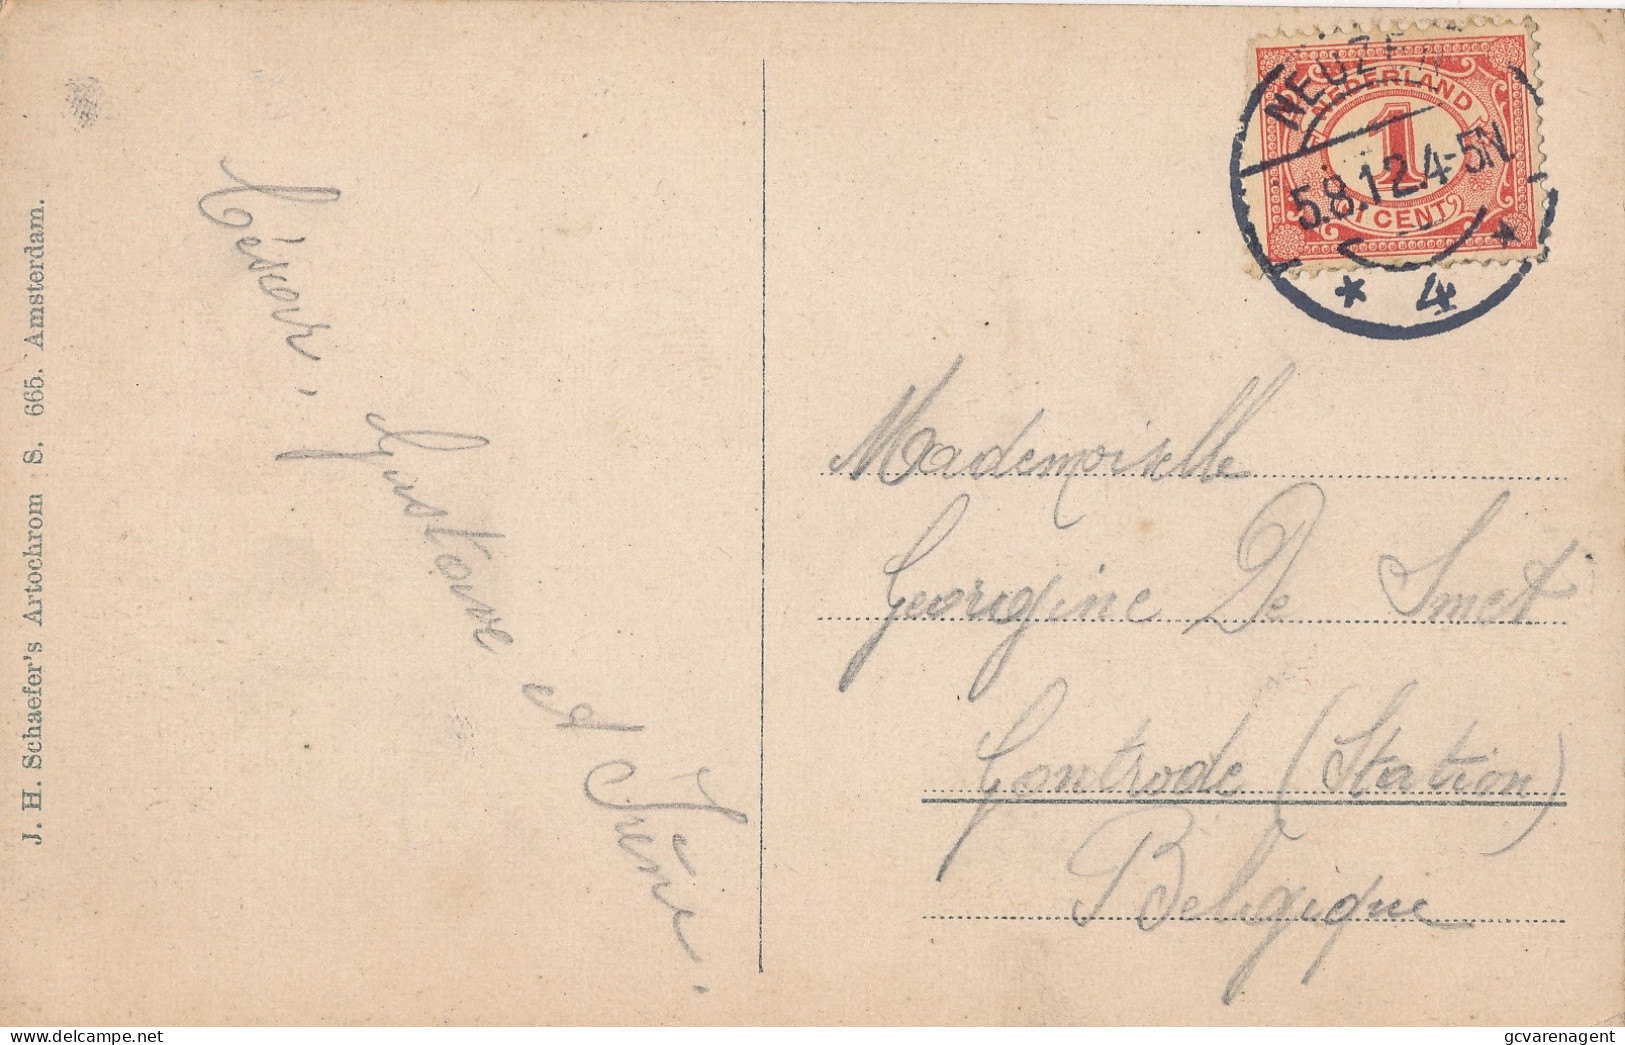 J. H. Schaefer's Artochrom S. 665. Amsterdam.
César,
Gustave et Irène.
NEUZEN
5.8.12.4-5N
* 4 *
NEDERLAND
1
1 CENT
Mademoiselle
Georigine De Smet
Gontrode (Station)
Belgique
www.delcampe.net
gcvarenagent